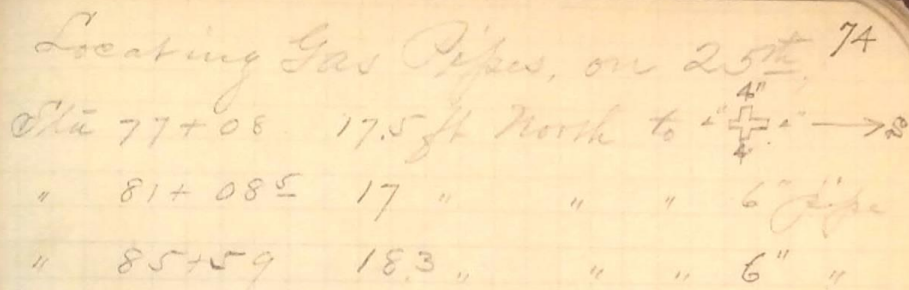 74
Locating Gas Pipes, on 25th,
Sta 77+08 17.5 ft North to 4" 4" →
" 81+08 5 17 " " " 6" pipe
" 85+59 18.3 " " " 6" "